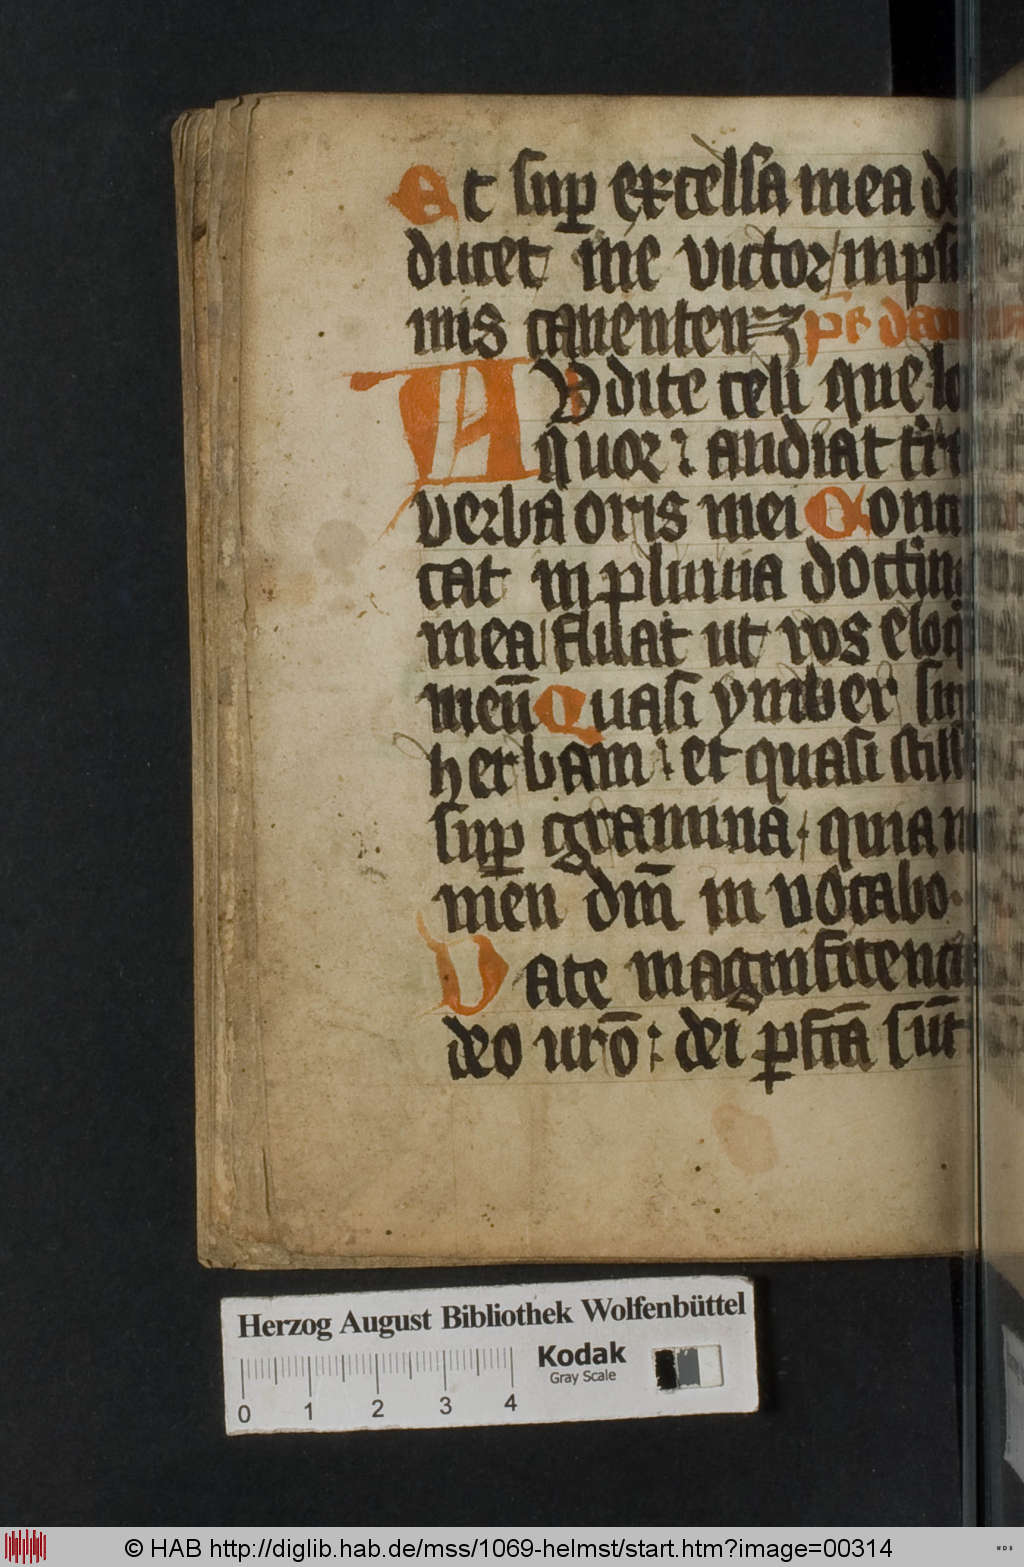 Et sup excelsa mea de
ducet me victor in psl
mis canentem ps dauid
Audite celi que lo
quor : audiat trra
verba oris mei Concre
cat in pluuia doctrina
mea fluat ut ros eloq
meū Quasi ymber sup
herbam : et quasi still
sup gramina . quia no
men dm̄ in vocabo .
Date magnificencia
deo uro : dei pfcā sūt
Herzog August Bibliothek Wolfenbüttel
Kodak
Gray Scale
0 1 2 3 4
© HAB http://diglib.hab.de/mss/1069-helmst/start.htm?image=00314